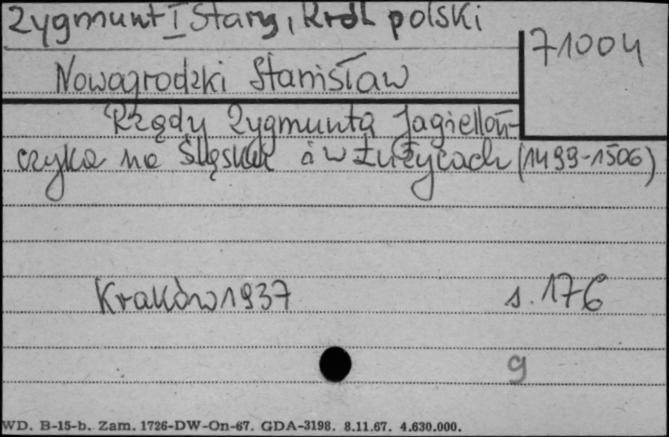 Zygmunt I Stary, Król polski
71004
Nowogrodzki Stanisław
Rządy Zygmunta Jagielloń-
czyka na Śląsku i w Łużycach (1499-1506)
Kraków 1937 s. 176
9
WD. B-15-b. Zam. 1726-DW-On-67. GDA-3198. 8.11.67. 4.630.000.